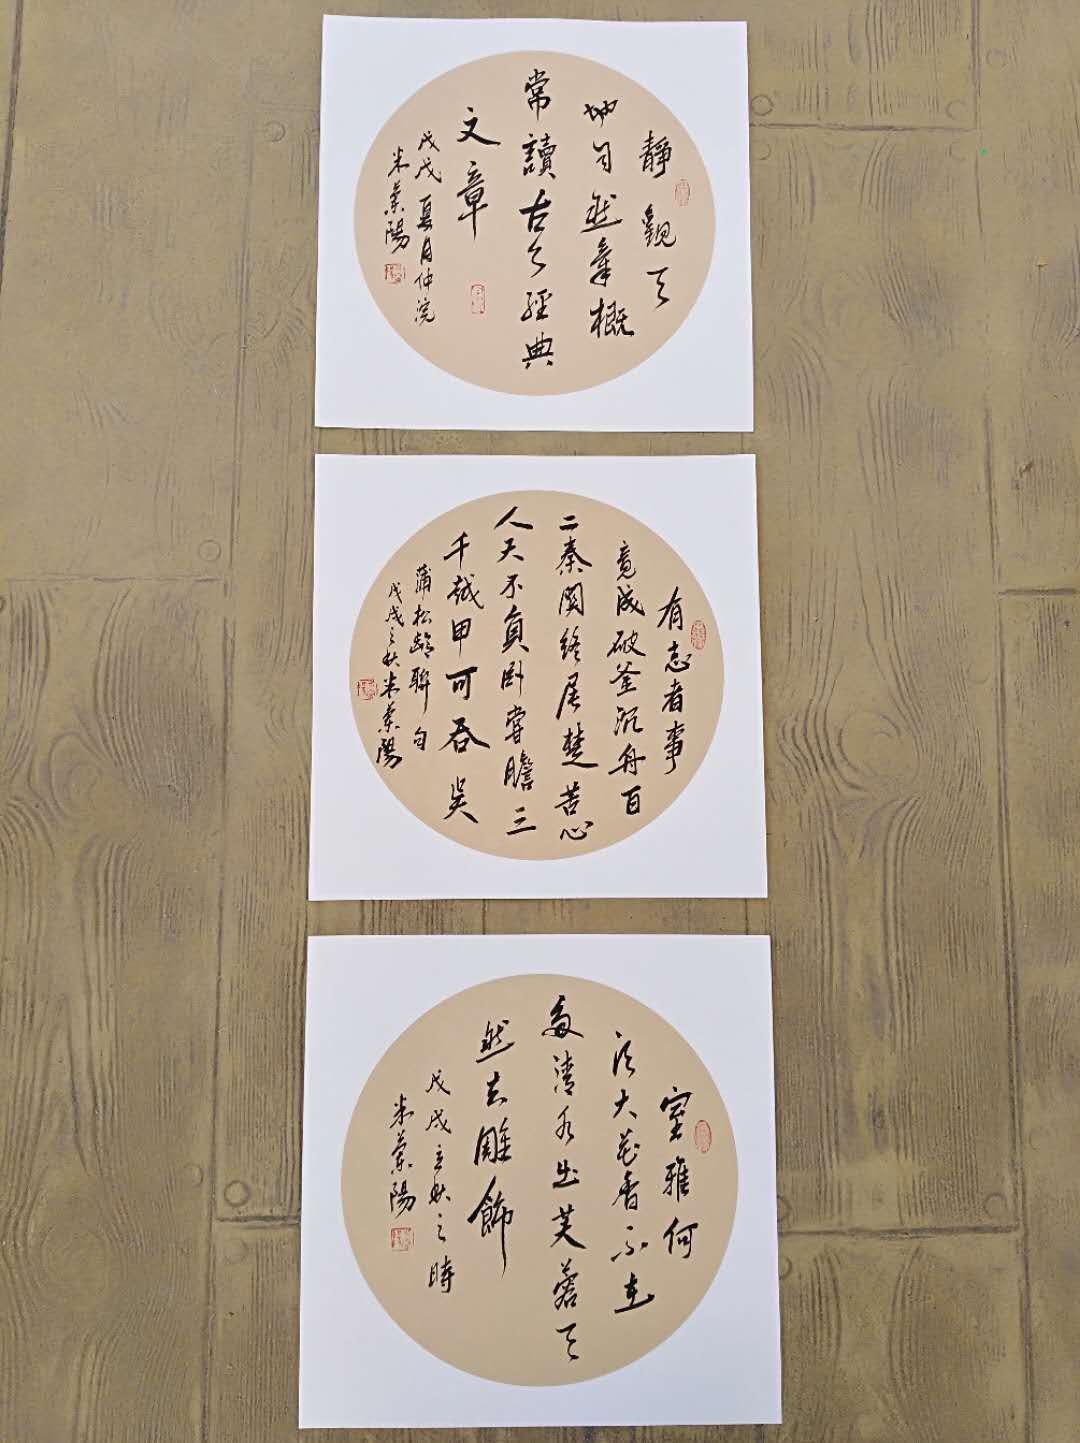 靜觀天
地自然氣概
常讀古今經典
文章
戊戌夏月仲浣
米陽
有志者事
竟成破釜沉舟百
二秦関終屬楚苦心
人天不負卧嘗膽三
千越甲可吞吳
蒲松齡聯句
戊戌之秋米陽
室雅何
須大花香不在
多清水出芙蓉天
然去雕飾
戊戌立秋之時
米陽